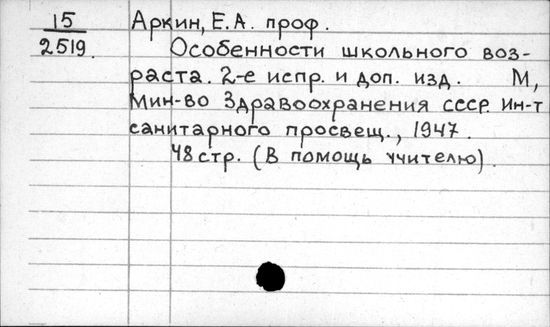 15
2519.
Аркин, Е.А. проф.
Особенности школьного воз-
раста. 2-е испр. и доп. изд. М,
Мин-во Здравоохранения СССР. Ин-т
санитарного просвещ., 1947.
48 стр. (В помощь учителю).